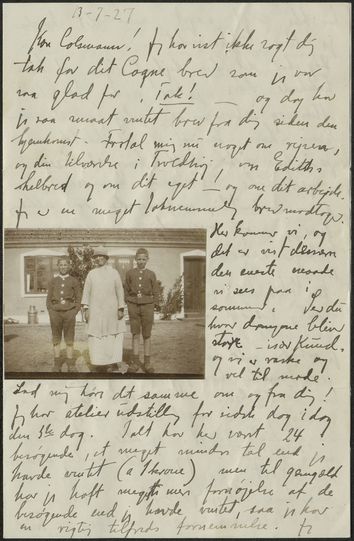 13-7-27
Kære Colsmann! Jeg har vist ikke sagt dig
tak for det Cogne brev som jeg var
saa glad for, Tak! — og dog har
jeg saa smaat ventet brev fra dig siden den
hjemkomst. Fortæl mig nu noget om rejsen,
og din tilværelse i , om Ediths
helbred og om dit eget! — og om det arbejde.
Jeg er en meget taknemmelig brevmodtager.
Her kommer vi, og
det er vist desværre
den eneste maade
vi ses paa i
sommer. Ser du
hvor drengene bliver
store – især Knud.
og vi er raske og
vel til mode.
Lad mig høre det samme om og fra dig!
Jeg har atelier udstilling for sidste dag i dag
den 3die dag. I alt har her været 24
besøgende, et meget mindre tal end jeg
havde ventet (a 1 krone) men til gengæld
har jeg haft meget mer fornøjelse af de
besøgende end jeg havde ventet, saa jeg har
en rigtig tilfreds fornemmelse. Jeg